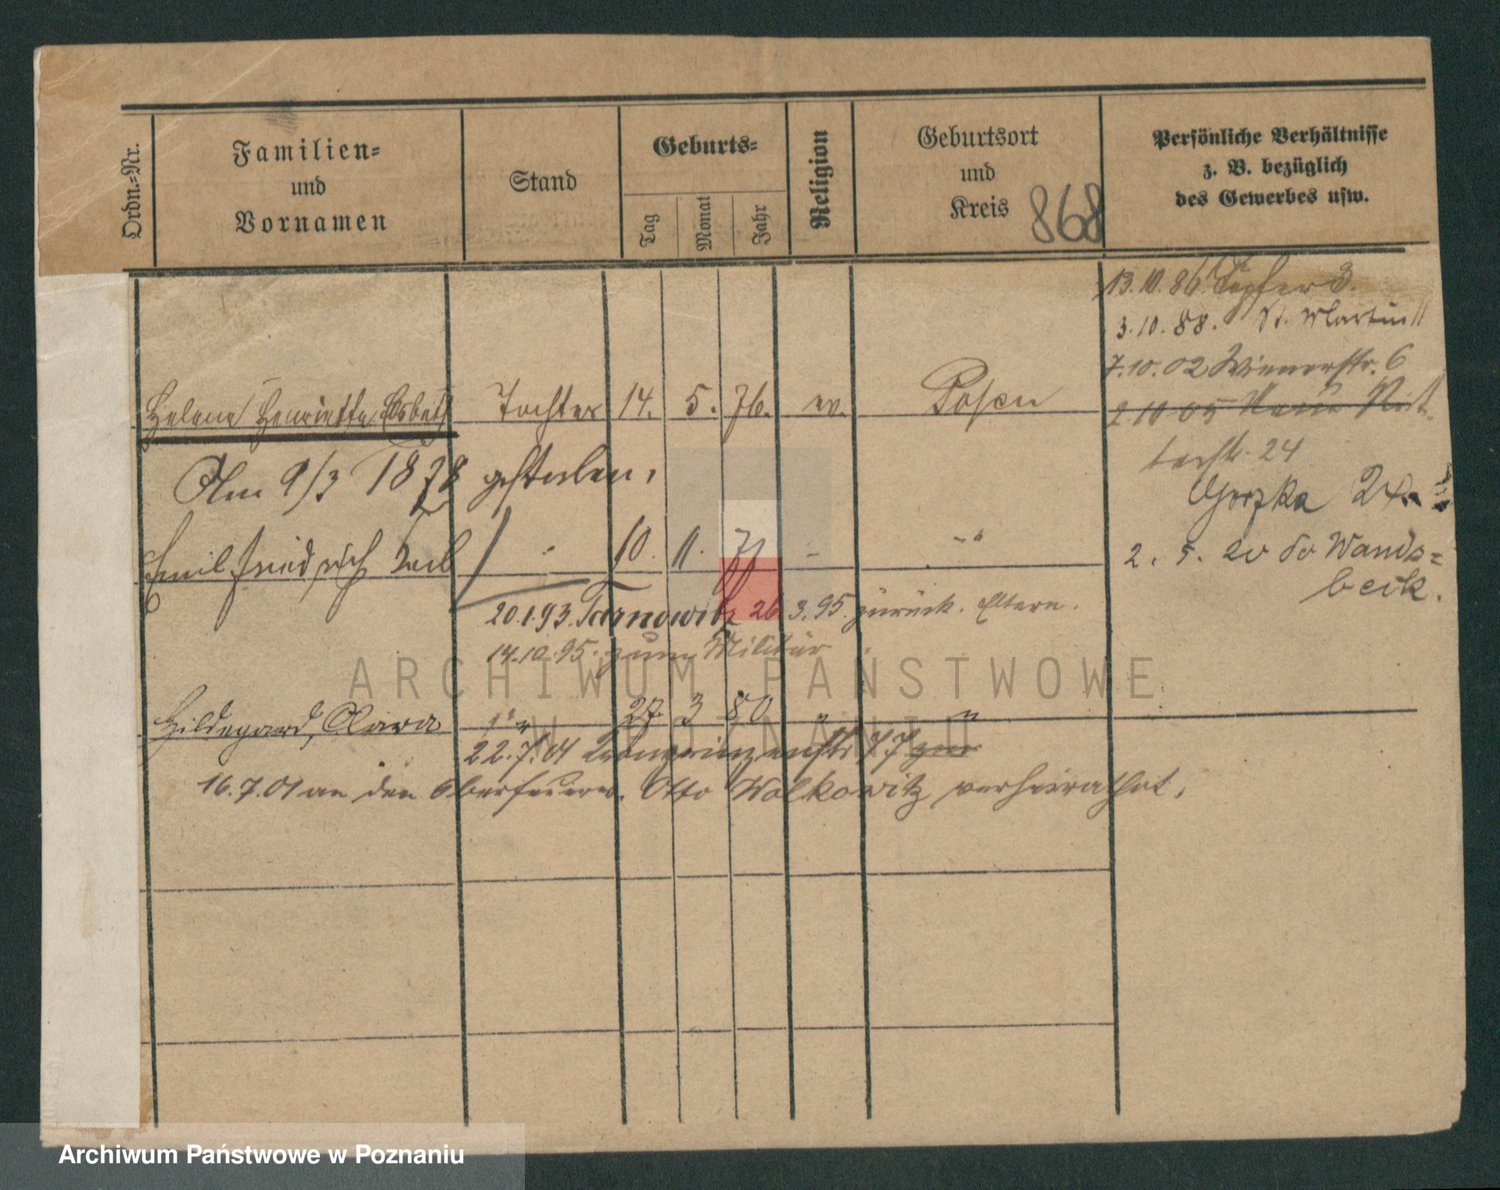 Ordn.-Nr.
Familien-
und
Vornamen
Stand
Geburts-
Tag
Monat
Jahr
Religion
Geburtsort
und
Kreis
868
Persönliche Verhältnisse
z. B. bezüglich
des Gewerbes usw.
13.10.86 Töpfer 3.
3.10.88. St. Martin 11
7.10.02 Wienerstr. 6
Helene Henriette Tochter 14. 5. 76. ev. Posen
2.10 05 Neue
24
Am 9/3 1878 gestorben.
Gorzka 24.
Emil Friedrich 10. 11.
2. 5. 20 Wands-
beck.
20.1.93. Tarnowitz 26.3.95. zurück. Eltern.
14.10.95. zum Militär
Hildegard, Clara 27 3 80
22.7.01 Kronprinzenstr. 77
16.7.01 an den Oberfeuerw. Otto Walkowitz verheirathet.
ARCHIWUM PAŃSTWOWE
W POZNANIU
Archiwum Państwowe w Poznaniu